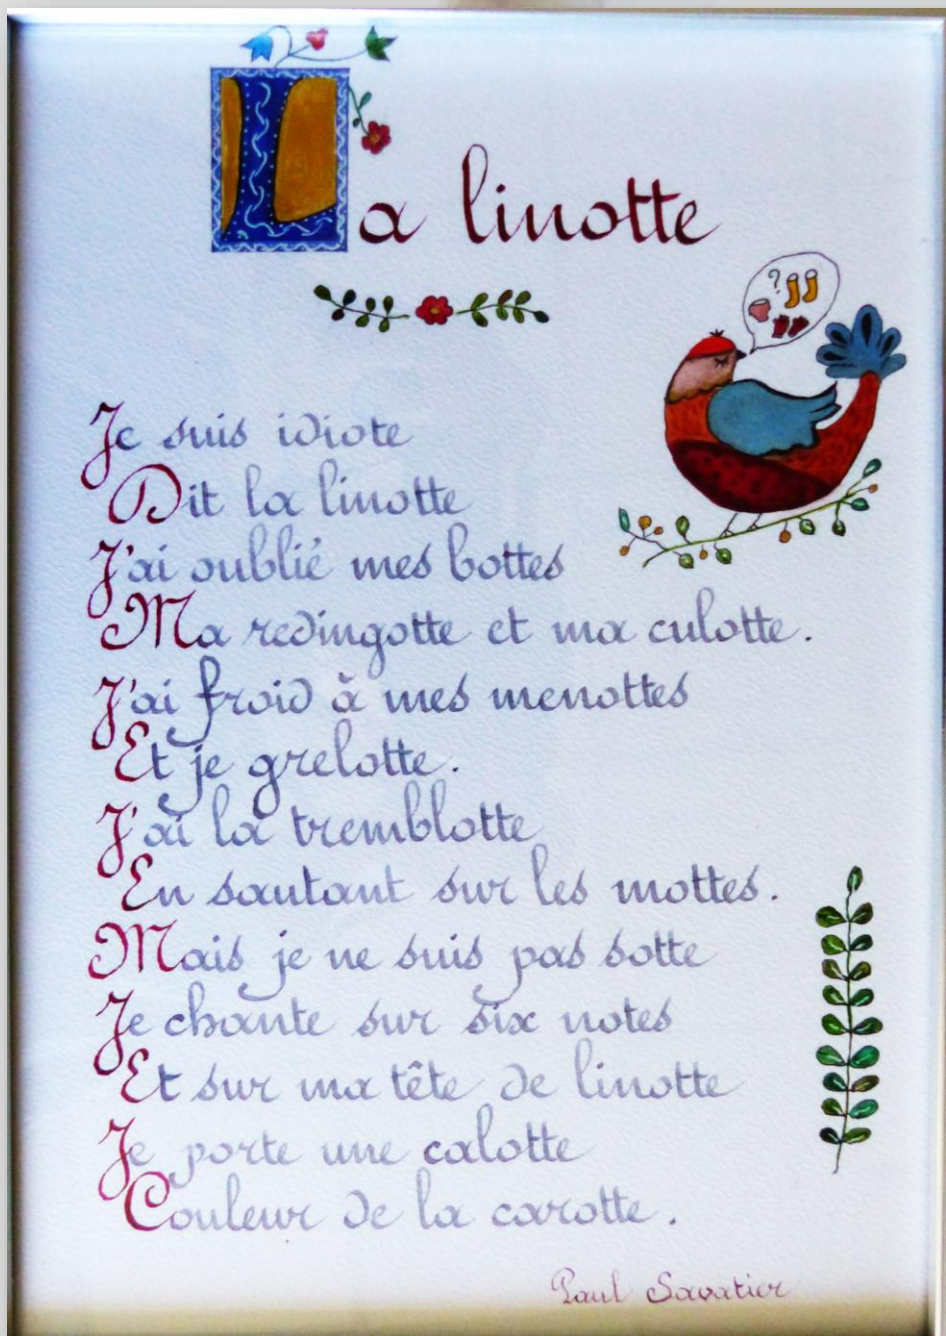 La linotte
?
Je suis idiote
Dit la linotte
J'ai oublié mes bottes
Ma redingotte et ma culotte.
J'ai froid à mes menottes
Et je grelotte.
J'ai la tremblotte
En sautant sur les mottes.
Mais je ne suis pas sotte
Je chante sur six notes
Et sur ma tête de linotte
Je porte une calotte
Couleur de la carotte.
Paul Savatier